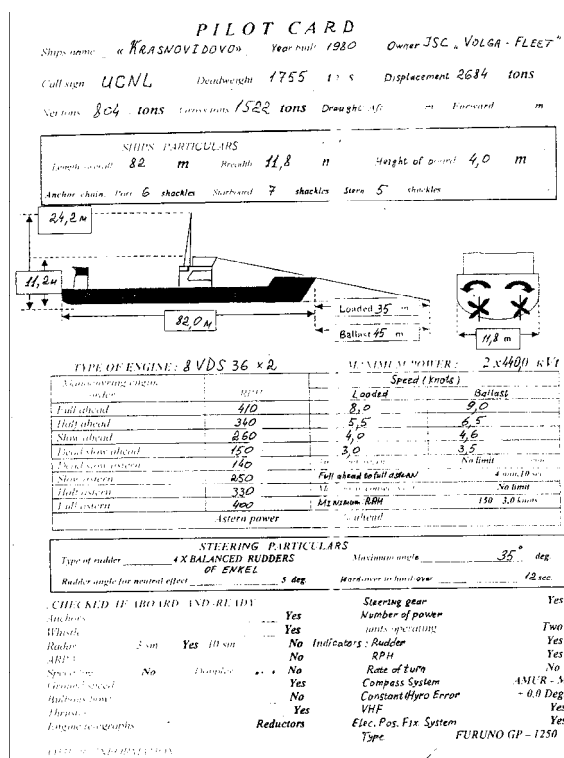 PILOT CARD
Ships name « KRASNOVIDOVO» Year built 1980 Owner JSC „ VOLGA - FLEET"
Call sign UCNL Deadweight 1755 Displacement 2684 tons
Net tons 804 tons Gross tons 1522 tons Draught Aft m Forward m
SHIPS PARTICULARS
Length overall 82 m Breadth 11,8 Height of board 4,0 m
Anchor chain. Port 6 shackles Starboard 7 shackles Stern 5 shackles
24,2 м
11,2м
82,0 м
Loaded 35 m
Ballast 45 m
11,8 m
TYPE OF ENGINE: 8 VDS 36 x2 MAXIMUM POWER: 2 x 440,0 kVt
Manoeuvring engine order RPH Speed (knots)
Loaded Ballast
Full ahead 410 8,0 9,0
Half ahead 340 5,5 6,5
Slow ahead 260 4,0 4,6
Dead slow ahead 150 3,0 3,5
Dead slow astern 140 No limit
Slow astern 250 Full ahead to full astern 4 min 10 sec
Half astern 330 No limit
Full astern 400 Minimum RPH 150 3,0 knots
Astern power % ahead
STEERING PARTICULARS
Type of rudder 4 X BALANCED RUDDERS OF ENKEL Maximum angle 35° deg
Rudder angle for neutral effect 5 deg Hard-over to hard-over 12 sec.
CHECKED IF ABOARD AND READY
Anchors Yes
Whistle Yes
Radar 3 sm Yes 10 sm No
ARPA No
No Doppler No
Ground speed Yes
Bulbous bow No
Thruster Yes
Engine telegraphs Reductors
Steering gear Yes
Number of power
units operating Two
Indicators: Rudder Yes
RPH Yes
Rate of turn No
Compass System AMUR - M
Constant Hyro Error + 0,0 Deg
VHF Yes
Elec. Pos. Fix. System Yes
Type FURUNO GP - 1250
OTHER INFORMATION